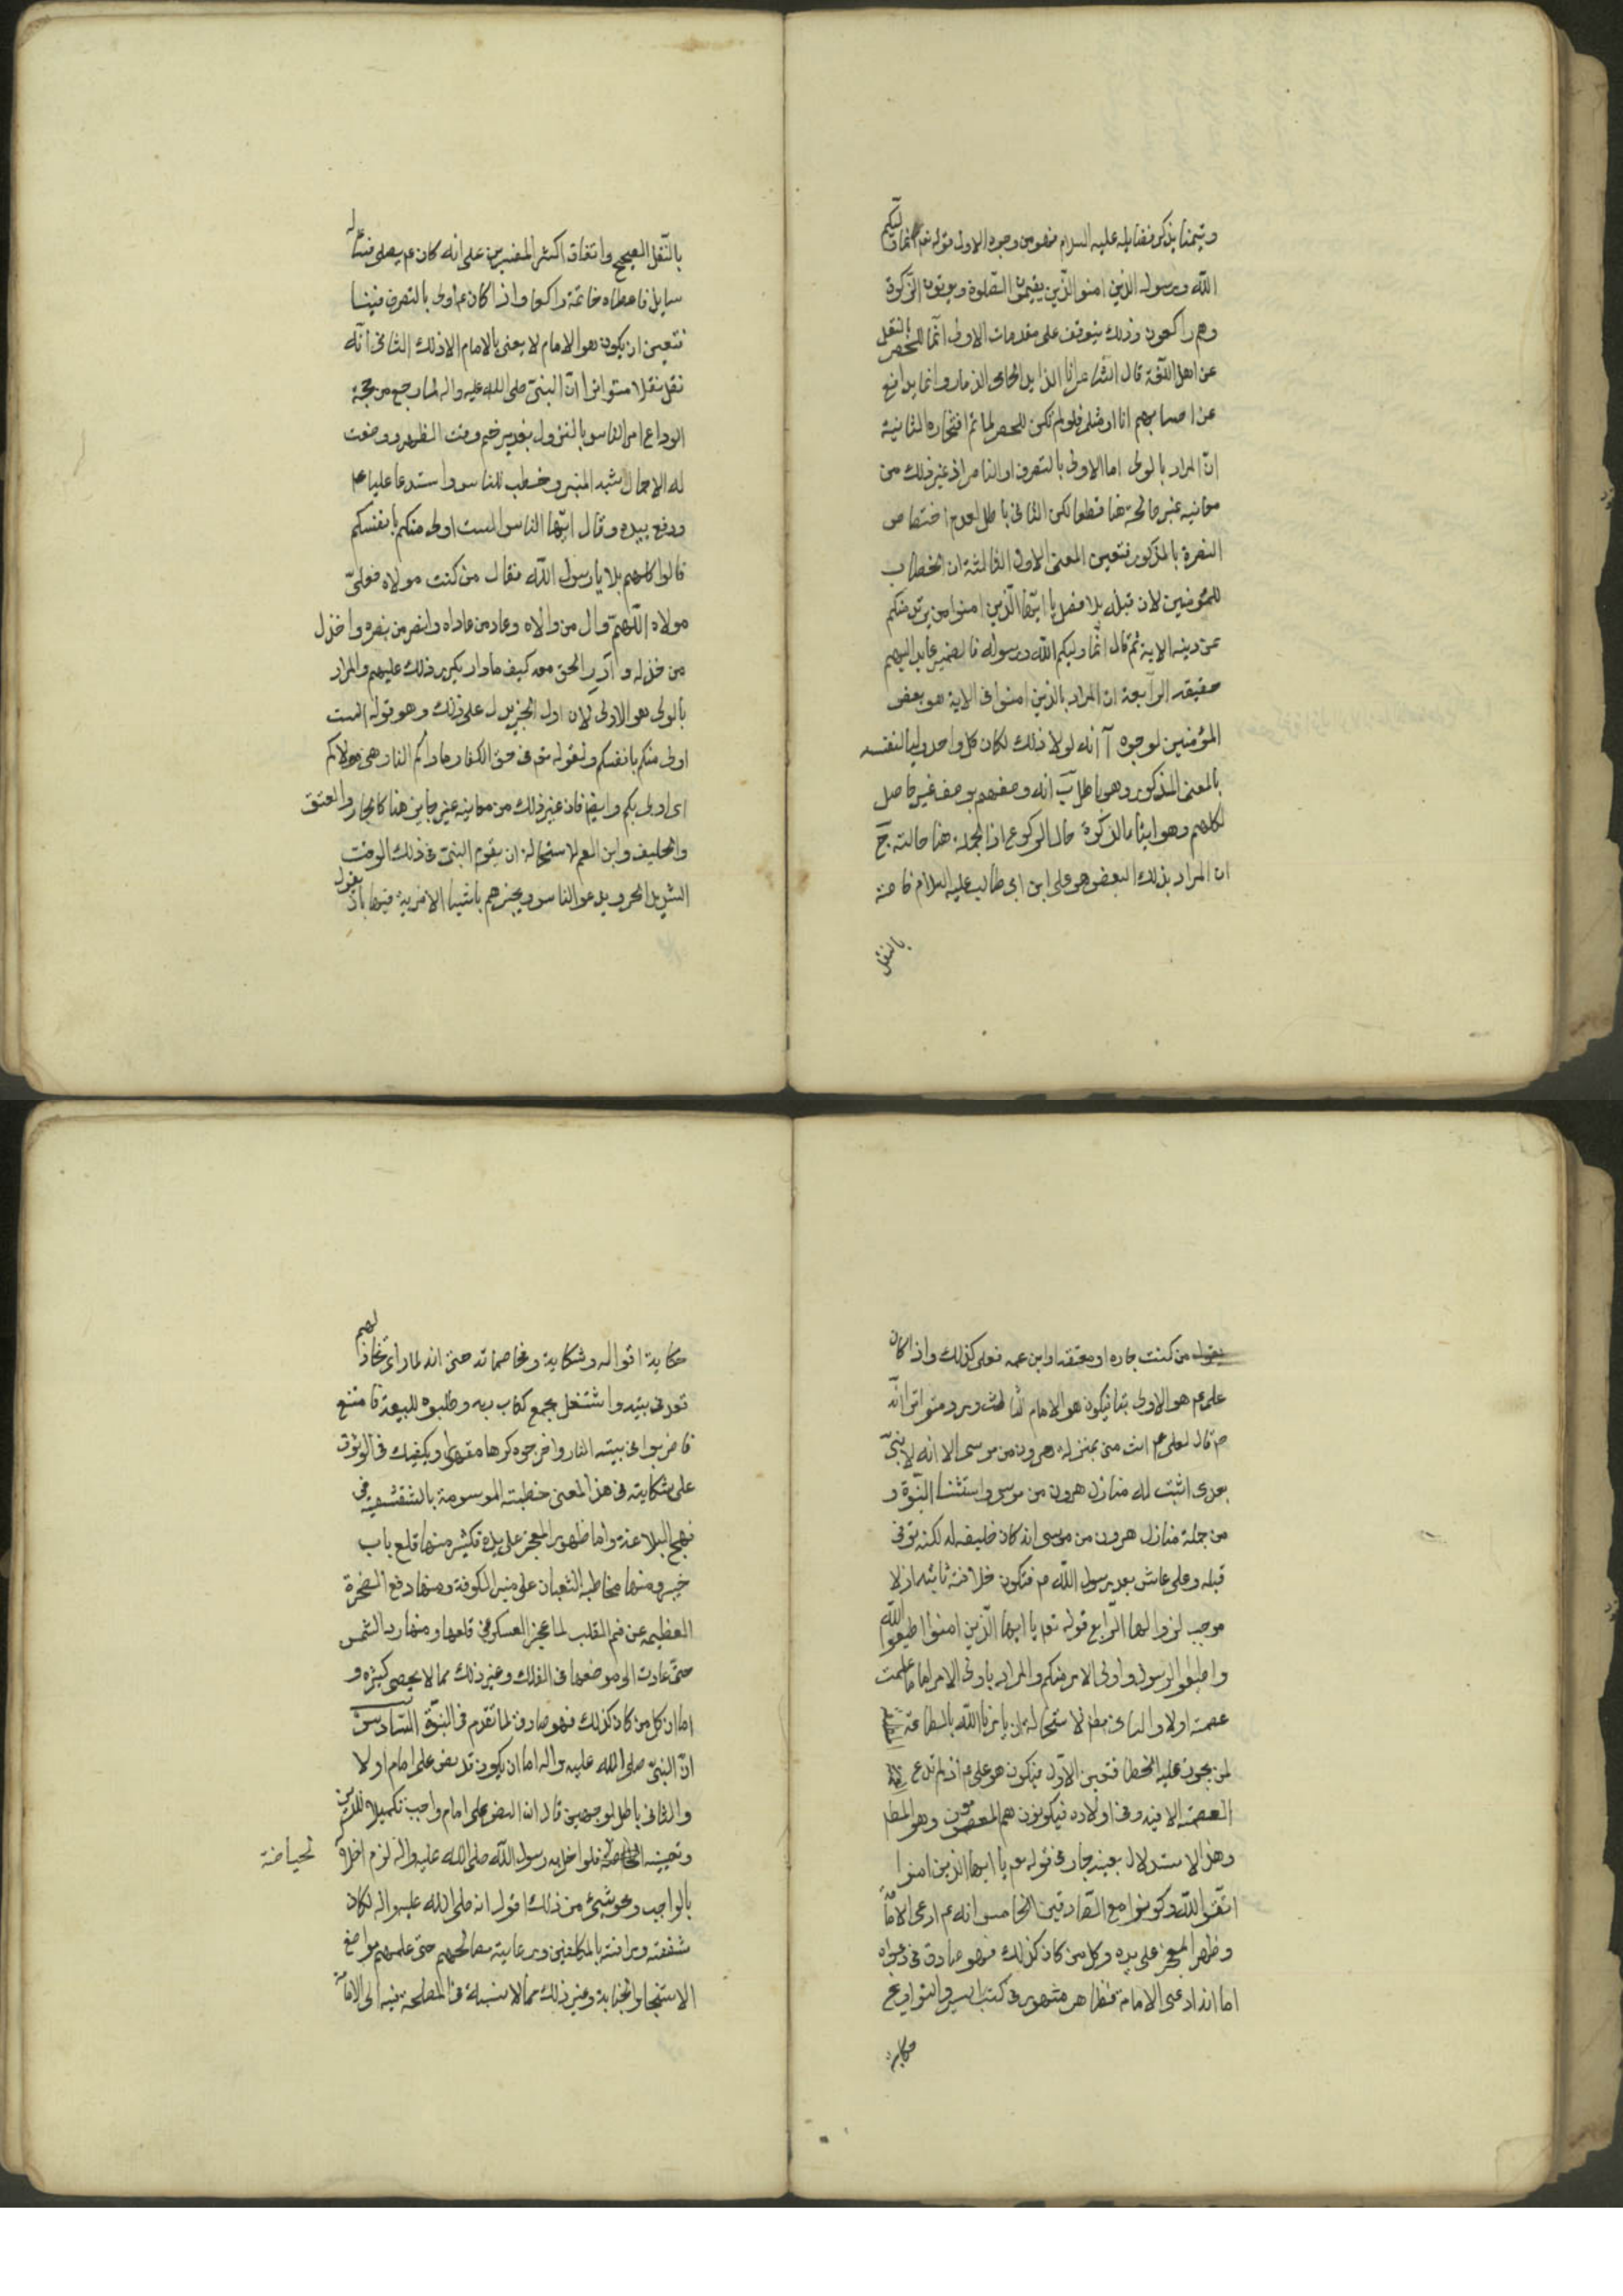 وتيمنا بذكر فضايله عليه السلام فهو من وجوه الاول قوله تعم انما وليكم
الله ورسوله الذين امنوا الذين يقيمون الصلوة ويوتون الزكوة
وهم راكعون وذلك يتوقف على مقدمات الاولى انما للحصر بالنقل
عن اهل اللغة قال الشاعر انا الذايد الحامى الذمار وانما يدافع
عن احسابهم انا او مثلى فلو لم تكن للحصر لما تم افتخاره الثانية
ان المراد بالولى اما الاولى بالتصرف او الناصر اذ غير ذلك من
معانيه غير صالحة هنا قطعا لكن الثانى باطل لعدم اختصاص
النصرة بالمذكور فتعين المعنى الاول الثالثة ان الخطاب
للمؤمنين لان قبله بلا فصل يا ايها الذين امنوا من يرتد منكم
عن دينه الاية ثم قال انما وليكم الله ورسوله فالضمير عايد اليهم
حقيقة الرابعة ان المراد بالذين امنوا فى الاية هو بعض
المؤمنين لوجوه آ انه لولا ذلك لكان كل واحد وليا لنفسه
بالمعنى المذكور وهو باطل ب انه وصفهم بوصف غير حاصل
لكلهم وهو ايتاء الزكوة حال الركوع اذ الجملة هنا حالية ج
ان المراد بذلك البعض هو على ابن ابى طالب عليه السلام خاصة
بالنقل
بالنقل الصحيح واتفاق اكثر المفسرين على انه كان عم يصلى فساله
سايل فاعطاه خاتمة راكعا واذا كان عم اولى بالتصرف فينا
فتعين ان يكون هو الامام لا يعنى بالامام الا ذلك الثانى انه
نقل نقلا متواترا ان النبى صلى الله عليه واله لما رجع من حجة
الوداع امر الناس بالنزول بغدير خم وقت الظهر ووضعت
له الاحمال شبه المنبر وخطب للناس واستدعا عليا عم
ورفع بيده وقال ايها الناس الست اولى منكم بانفسكم
قالوا كلهم بلا يا رسول الله فقال من كنت مولاه فعلى
مولاه اللهم وال من والاه وعاد من عاداه وانصر من نصره واخذل
من خذله وادر الحق معه كيف ما دار يكرر ذلك عليهم والمراد
بالولى هو الاولى لان اول الخبر يدل على ذلك وهو قوله الست
اولى منكم بانفسكم ولقوله تعم فى حق الكفار ماواكم النار هى مولاكم
اى اولى بكم وايضا فان غير ذلك من معانيه غير جايز هنا كالجار والمعتق
والحليف وابن العم لاستحالة ان يقوم النبى فى ذلك الوقت
الشديد الحر ويدعو الناس ويخبرهم باشياء لا مزية فيها بان يقول
يقول من كنت جاره او معتقه او ابن عمه فعلى كذلك واذا كان
على عم هو الاولى بنا فيكون هو الامام الثالث ورد متواترا انه
ص قال لعلى عم انت منى بمنزلة هرون من موسى الا انه لا نبى
بعدى اثبت له منازل هرون من موسى واستثنا النبوة و
من جملة منازل هرون من موسى انه كان خليفه له لكنه توفى
قبله وعلى عاش بعد رسول الله ص فتكون خلافته ثابته اذ لا
موجب لزوالها الرابع قوله تعم يا ايها الذين امنوا اطيعوا الله
واطيعوا الرسول واولى الامر منكم والمراد باولى الامر اما من علمت
عصمته اولا والثانى بطم لاستحالة ان يامرنا الله بالطاعة
لمن يجوز عليه الخطا فتعين الاول فيكون هو على عم اذ لم تدع
العصمة الا فيه وفى اولاده فيكونون هم المعصومون وهو المطم
وهذا الاستدلال بعينه جار فى قوله تعم يا ايها الذين امنوا
اتقوا الله وكونوا مع الصادقين الخامس انه عم ادعى الامامة
وظهر المعجز على يده وكل من كان كذلك فهو صادق فى دعواه
اما انه ادعى الامامة فظاهر مشهور فى كتب السير والتواريخ
حكاية
حكاية اقواله وشكاية ومخاصماته حتى انه لما راى تخاذلهم
قعد فى بيته واشتغل بجمع كتاب ربه وطلبوه للبيعة فامتنع
فاضربوا فى بيته النار واخرجوه كرها مقهورا ويكفيك فى الوثوق
على شكايته فى هذا المعنى خطبته الموسومة بالشقشقية فى
نهج البلاغة واما ظهور المعجز على يده فكثير منها قلع باب
خيبر ومنها مخاطبة الثعبان على منبر الكوفة ومنها رفع الصخرة
العظيمة عن فم القليب لما عجز العسكر عن قلعها ومنها رد الشمس
حتى عادت الى موضعها فى الفلك وغير ذلك مما لا يحصى كثيرة و
اما ان كل من كان كذلك فهو صادق لما تقدم فى النبوة السادس
ان النبى صلى الله عليه واله اما ان يكون قد نص على امام اولا
والثانى باطل لوجهين قال ان النص على امام واجب تكميلا للدين
وتعيينه فلو اخل به رسول الله صلى الله عليه واله لزم اخلاله
بالواجب وهو شيئ من ذلك اقول انه صلى الله عليه واله لكان
شفقته ورافته بالمكلفين ورعايته مصالحهم حتى علمهم مواضع
الاستنجا والجنابة وغير ذلك مما لا نسبة فى المصلحة فيه الى الامامة